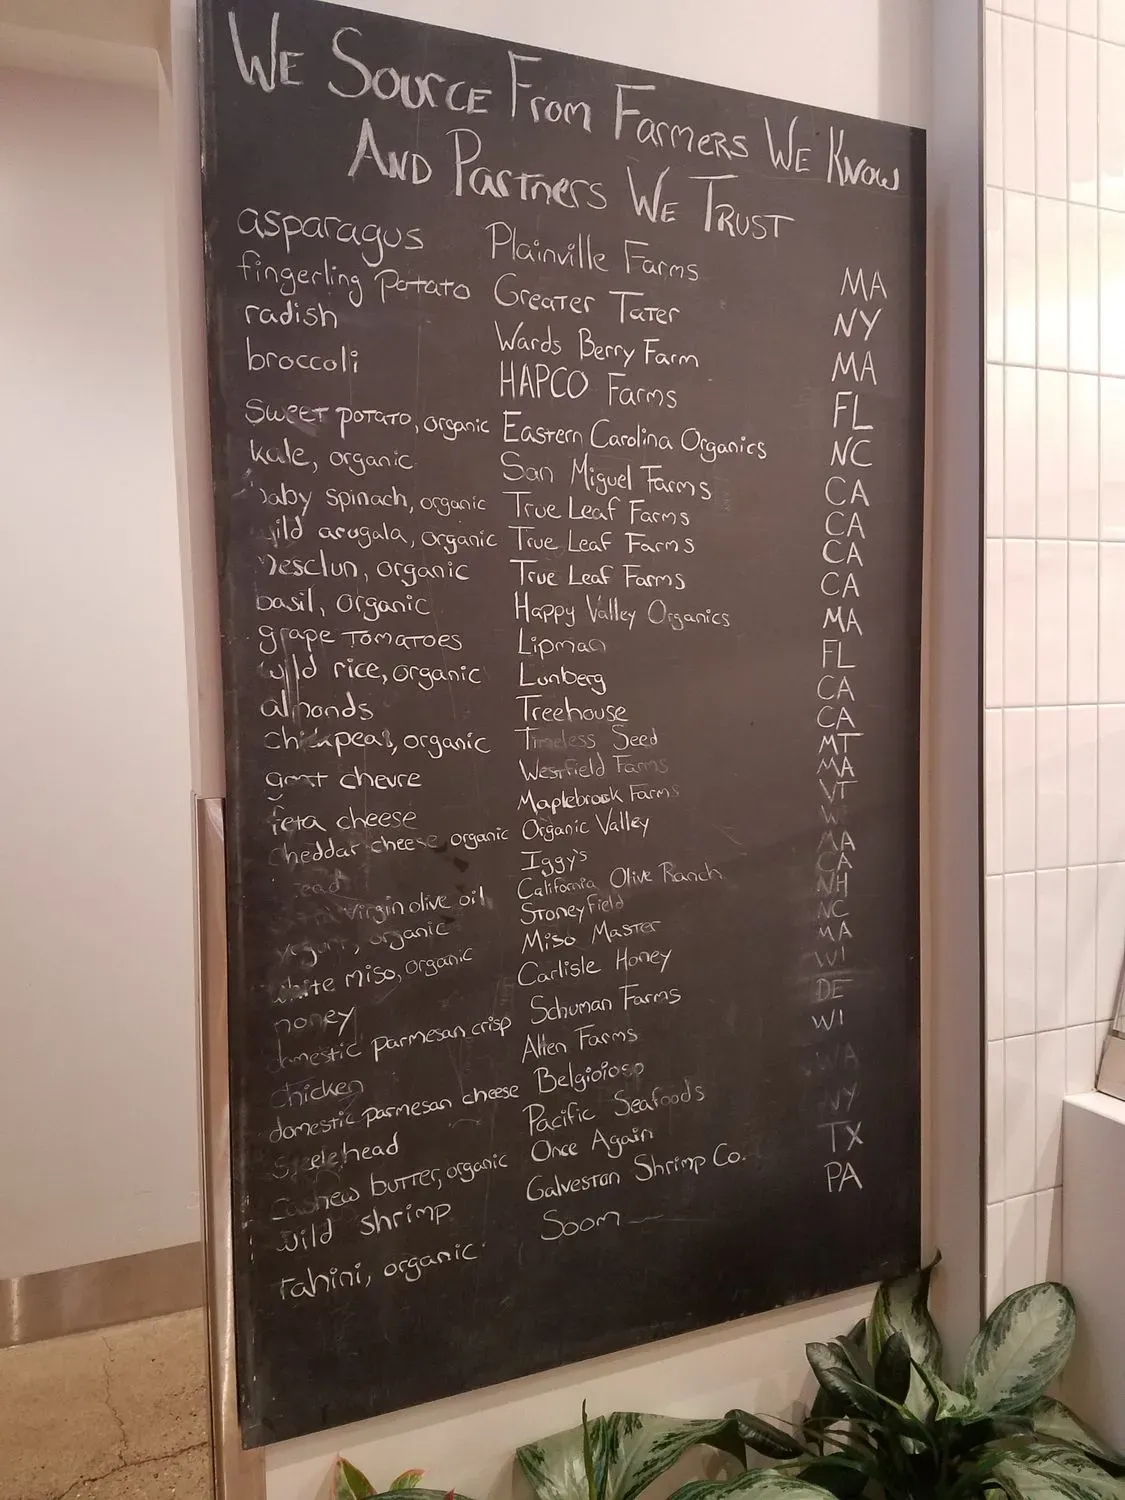 WE SOURCE FROM FARMERS WE KNOW
AND PARTNERS WE TRUST
asparagus Plainville Farms MA
fingerling Potato Greater Tater NY
radish Wards Berry Farm MA
broccoli HAPCO Farms FL
sweet potato, organic Eastern Carolina Organics NC
kale, organic San Miguel Farms CA
baby spinach, organic True Leaf Farms CA
wild arugala, organic True Leaf Farms CA
mesclun, organic True Leaf Farms CA
basil, organic Happy Valley Organics MA
grape tomatoes Lipman FL
wild rice, organic Lunberg CA
almonds Treehouse CA
chickpeas, organic Timeless Seed MT
goat chevre Westfield Farms MA
feta cheese Maplebrook Farms VT
cheddar cheese, organic Organic Valley
Iggy's MA
virgin olive oil California Olive Ranch CA
yogurt, organic Stoneyfield NH
white miso, organic Miso Master NC
honey Carlisle Honey MA
domestic parmesan crisp Schuman Farms WI
chicken Allen Farms DE
domestic parmesan cheese Belgioioso WI
steelehead Pacific Seafoods WA
cashew butter, organic Once Again NY
wild shrimp Galveston Shrimp Co. TX
tahini, organic Soom PA